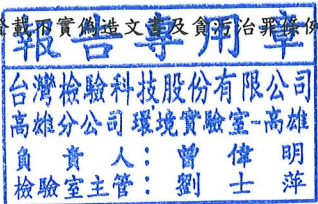 登載不實偽造文書及貪污治罪條例
報告專用章
台灣檢驗科技股份有限公司
高雄分公司環境實驗室-高雄
負責人：曾偉明
檢驗室主管：劉士萍